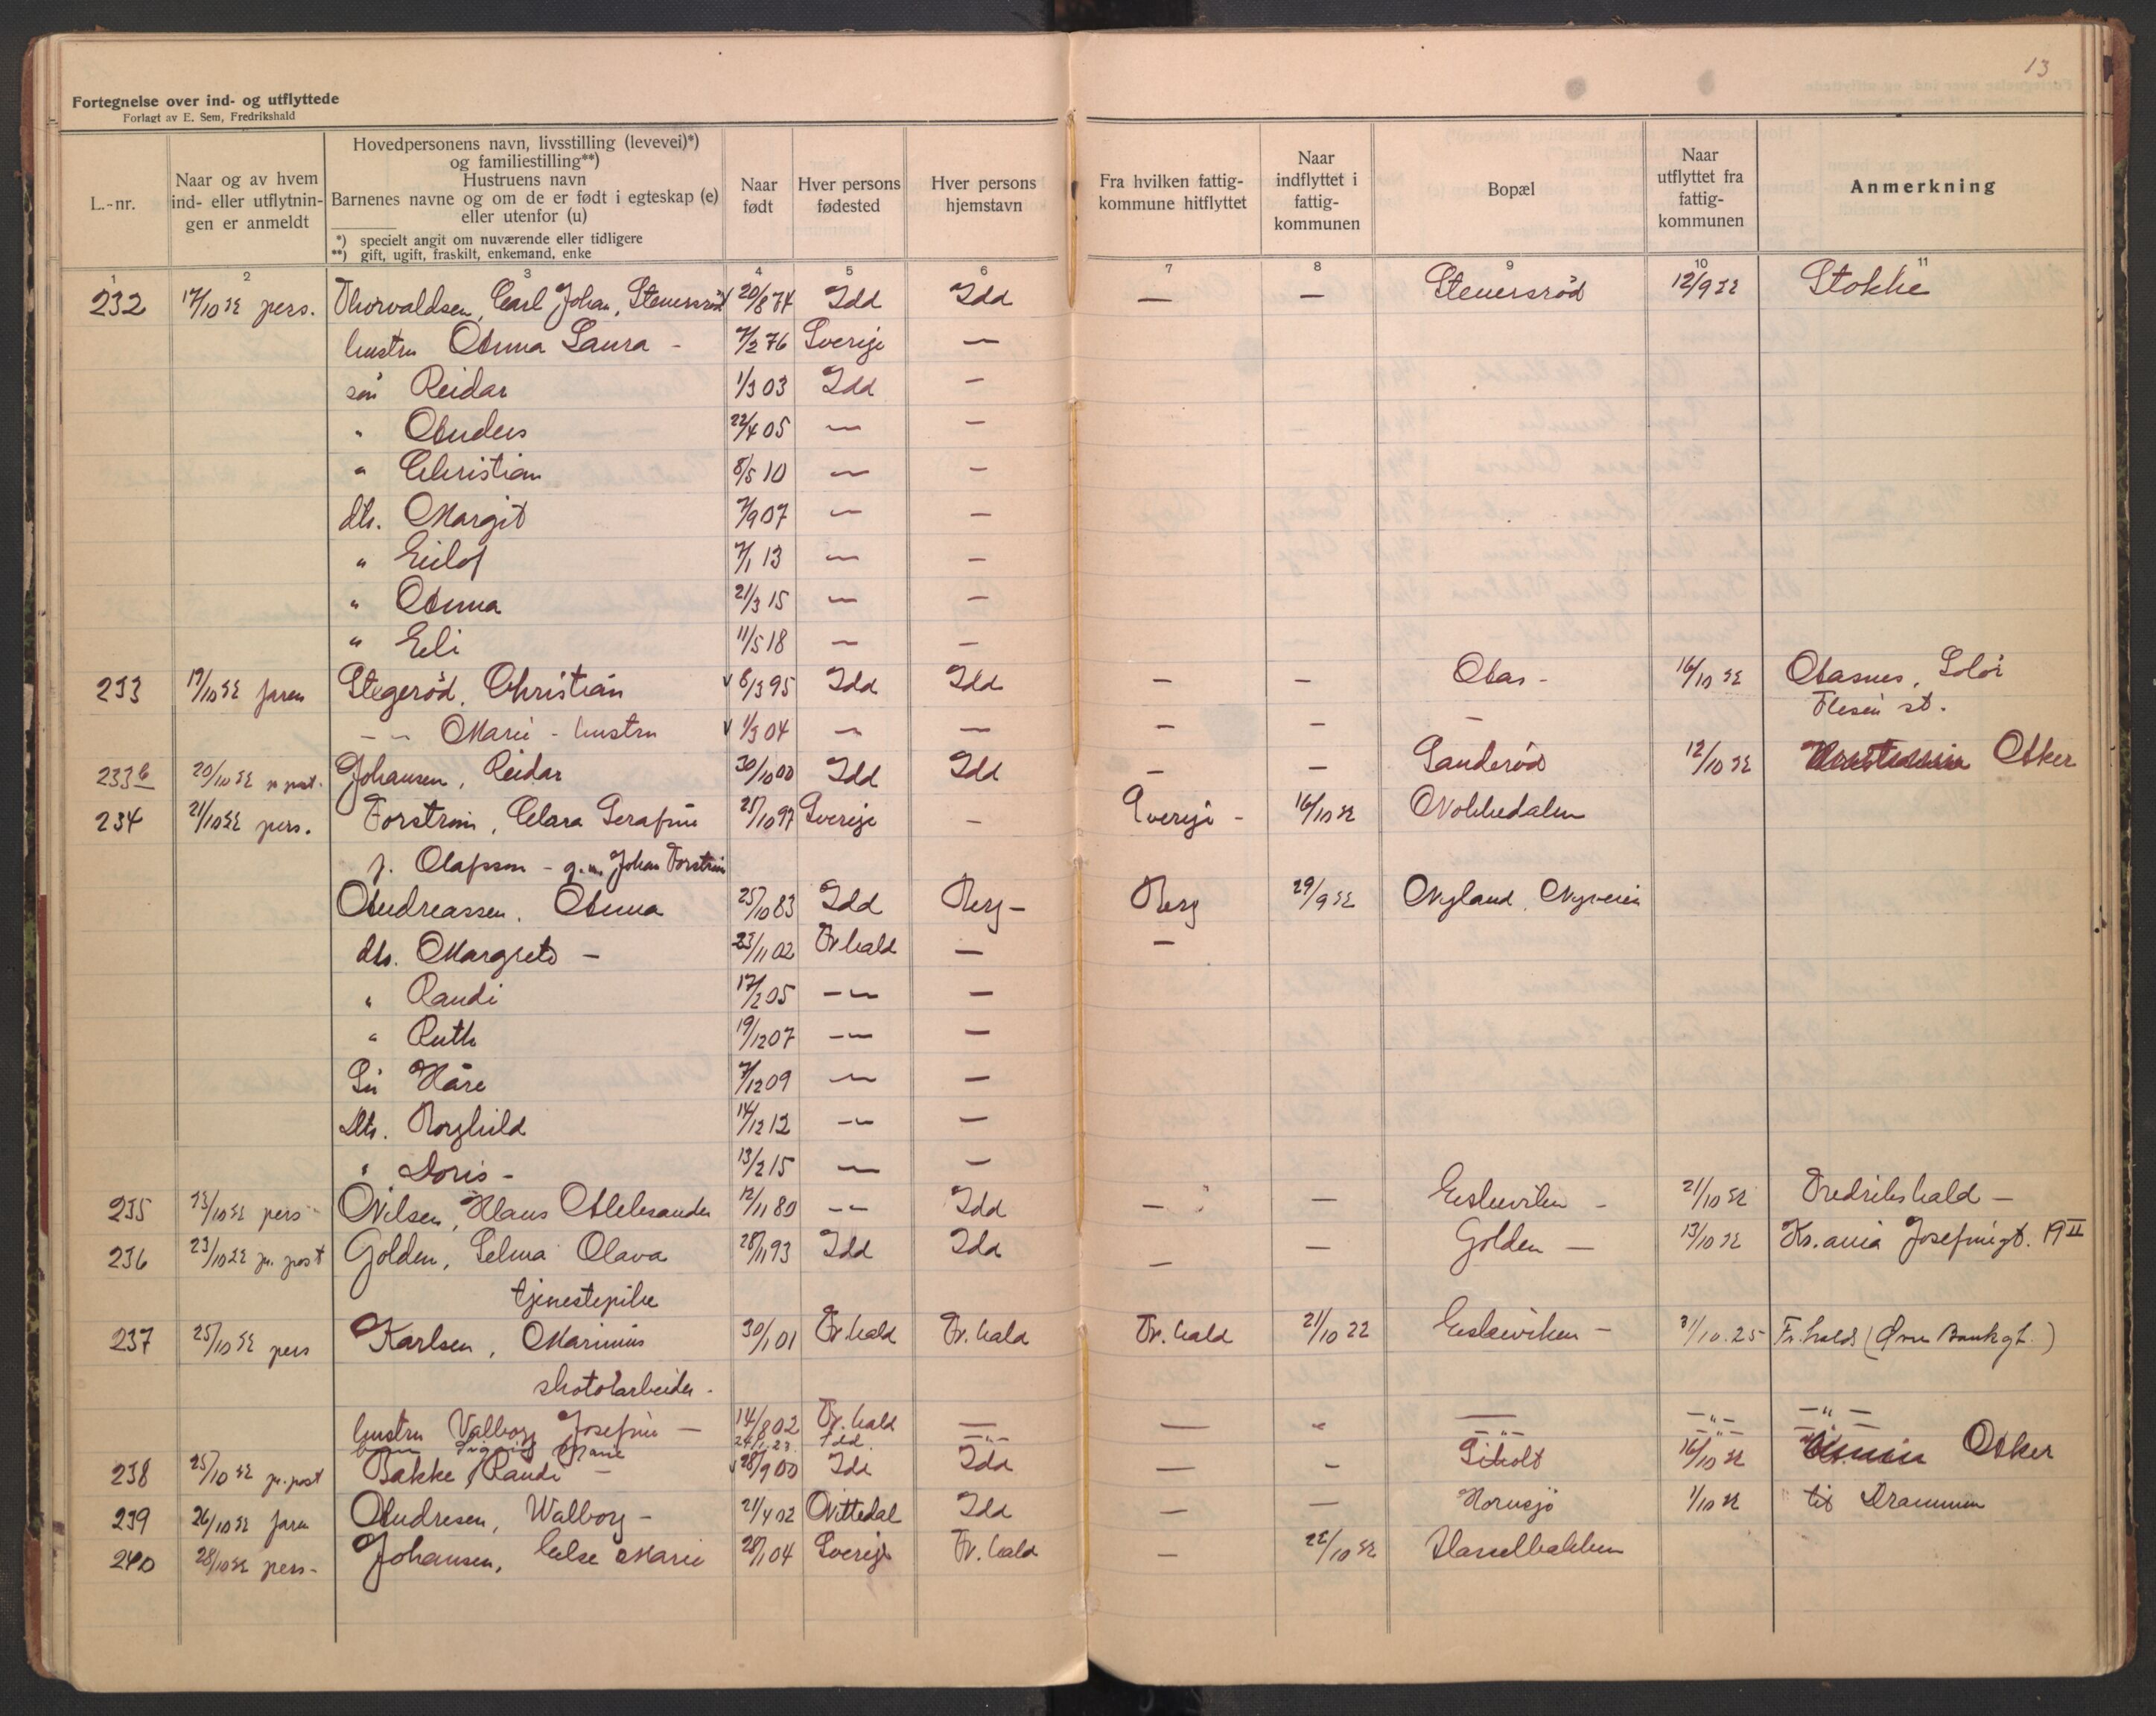 13
Fortegnelse over ind- og utflyttede
Forlagt av E. Sem, Fredrikshald
L.-nr.
Naar og av hvem ind- eller utflytningen er anmeldt
Hovedpersonens navn, livsstilling (levevei)*) og familiestilling**)
Hustruens navn
Barnenes navne og om de er født i egteskap (e) eller utenfor (u)
*) specielt angit om nuværende eller tidligere
**) gift, ugift, fraskilt, enkemand, enke
Naar født
Hver persons fødested
Hver persons hjemstavn
Fra hvilken fattigkommune hitflyttet
Naar indflyttet i fattigkommunen
Bopæl
Naar utflyttet fra fattigkommunen
Anmerkning
1 2 3 4 5 6 7 8 9 10 11
232 17/10 22 pers. Thorvaldsen, Carl Johan, Stenersrød 20/8 74 Idd Idd — — Stenersrød 12/9 22 Stokke
hustru Anna Laura - 7/2 76 Sverige —
søn Reidar 1/3 03 Idd —
" Anders 22/4 05 — —
" Christian 8/5 10 — —
dtr. Margit 7/9 07 — —
" Eilof 7/1 13 — —
" Anna 21/3 15 — —
" Eli 11/5 18 — —
233 19/10 22 faren Stegerød, Christian v 6/3 95 Idd Idd — — Aas - 16/10 22 Aasnes, Solør
Flesen st.
— — Marie - hustru v 1/3 04 — — — — —
233b 20/10 22 p. post. Johansen, Reidar 30/10 00 Idd Idd — — Sanderød 12/10 22 Asker
234 21/10 22 pers. Forstrøm, Clara Serafine 25/10 97 Sverige — Sverige - 16/10 22 Nokkedalen
f. Olafsson - g.m. Johan Forstrøm
Andreassen, Anna 25/10 83 Idd Berg - Berg 29/9 22 Nyland, Nyveien
dtr. Margrete - 23/11 02 Fr.hald — —
" Randi 17/2 05 — — —
" Ruth 19/12 07 — — —
Søn Kåre 7/12 09 — —
Dtr. Borghild 14/12 12 — —
" Doris - 13/2 15 — —
235 23/10 22 pers Nilsen, Klaus Aleksander 12/11 80 — — Idd — — Eskeviken - 21/10 22 Fredrikshald —
236 23/10 22 p. post Golden, Selma Olava 28/11 93 Idd Idd — — Golden — 13/10 22 Kr.ania Josefinegt. 19 II
tjenestepike
237 25/10 22 pers Karlsen, Marinius 30/1 01 Fr.hald Fr.hald Fr.hald 21/10 22 Eskeviken - 31/10.25 Fr.hald (Øvre Bankgt.)
skotøiarbeider -
hustru Valborg Josefine — 14/8 02 Fr.hald — — " — — " — — " —
barn Marie 24/1 23. Idd. — " — — " —
238 25/10 22 p. post Bakke, Randi — v 28/9 00 Idd Idd — - Siholt 16/10 22 Asker
239 26/10 22 faren Andresen, Walborg - 21/4 02 Nittedal Idd — — Kornsjø 1/10 22 til Drammen
240 28/10 22 pers- Johansen, Else Marie 28/1 04 Sverige Fr.hald — 22/10 22 Hasselbakken